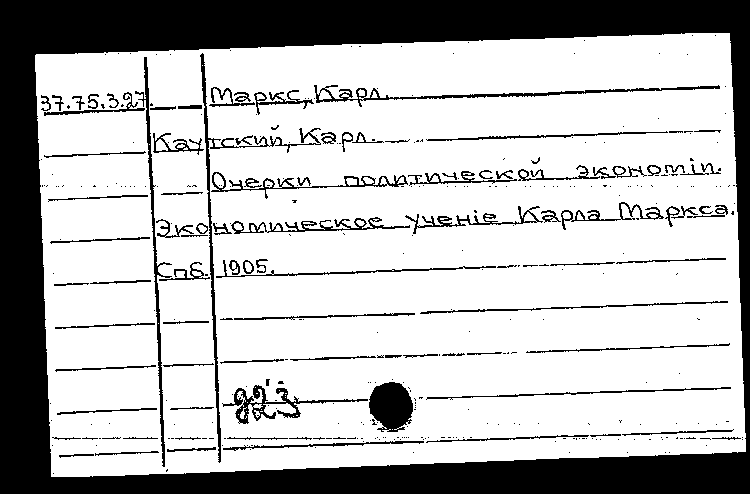 37.75.3.27. Маркс, Карл.
Каутский, Карл.
Очерки политической экономіи.
Экономическое ученіе Карла Маркса.
Спб. 1905.